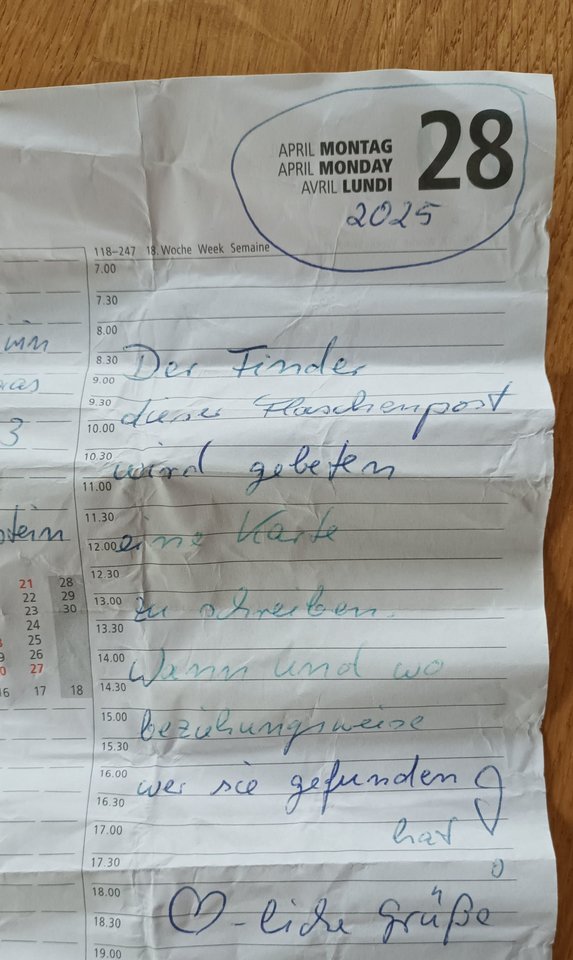 APRIL MONTAG 28
APRIL MONDAY
AVRIL LUNDI
2025
118–247 18. Woche Week Semaine
7.00
7.30
8.00
8.30 Der Finder
9.00
9.30 dieser Flaschenpost
10.00
10.30 wird gebeten
11.00
11.30
12.00 eine Karte
12.30
13.00 zu schreiben.
13.30
14.00 Wann und wo
14.30
15.00 beziehungsweise
15.30
16.00 wer sie gefunden
16.30
17.00 hat!
17.30
18.00
18.30 ♡-liche Grüße
19.00
3
21 28
22 29
23 30
24
25
26
27
17 18